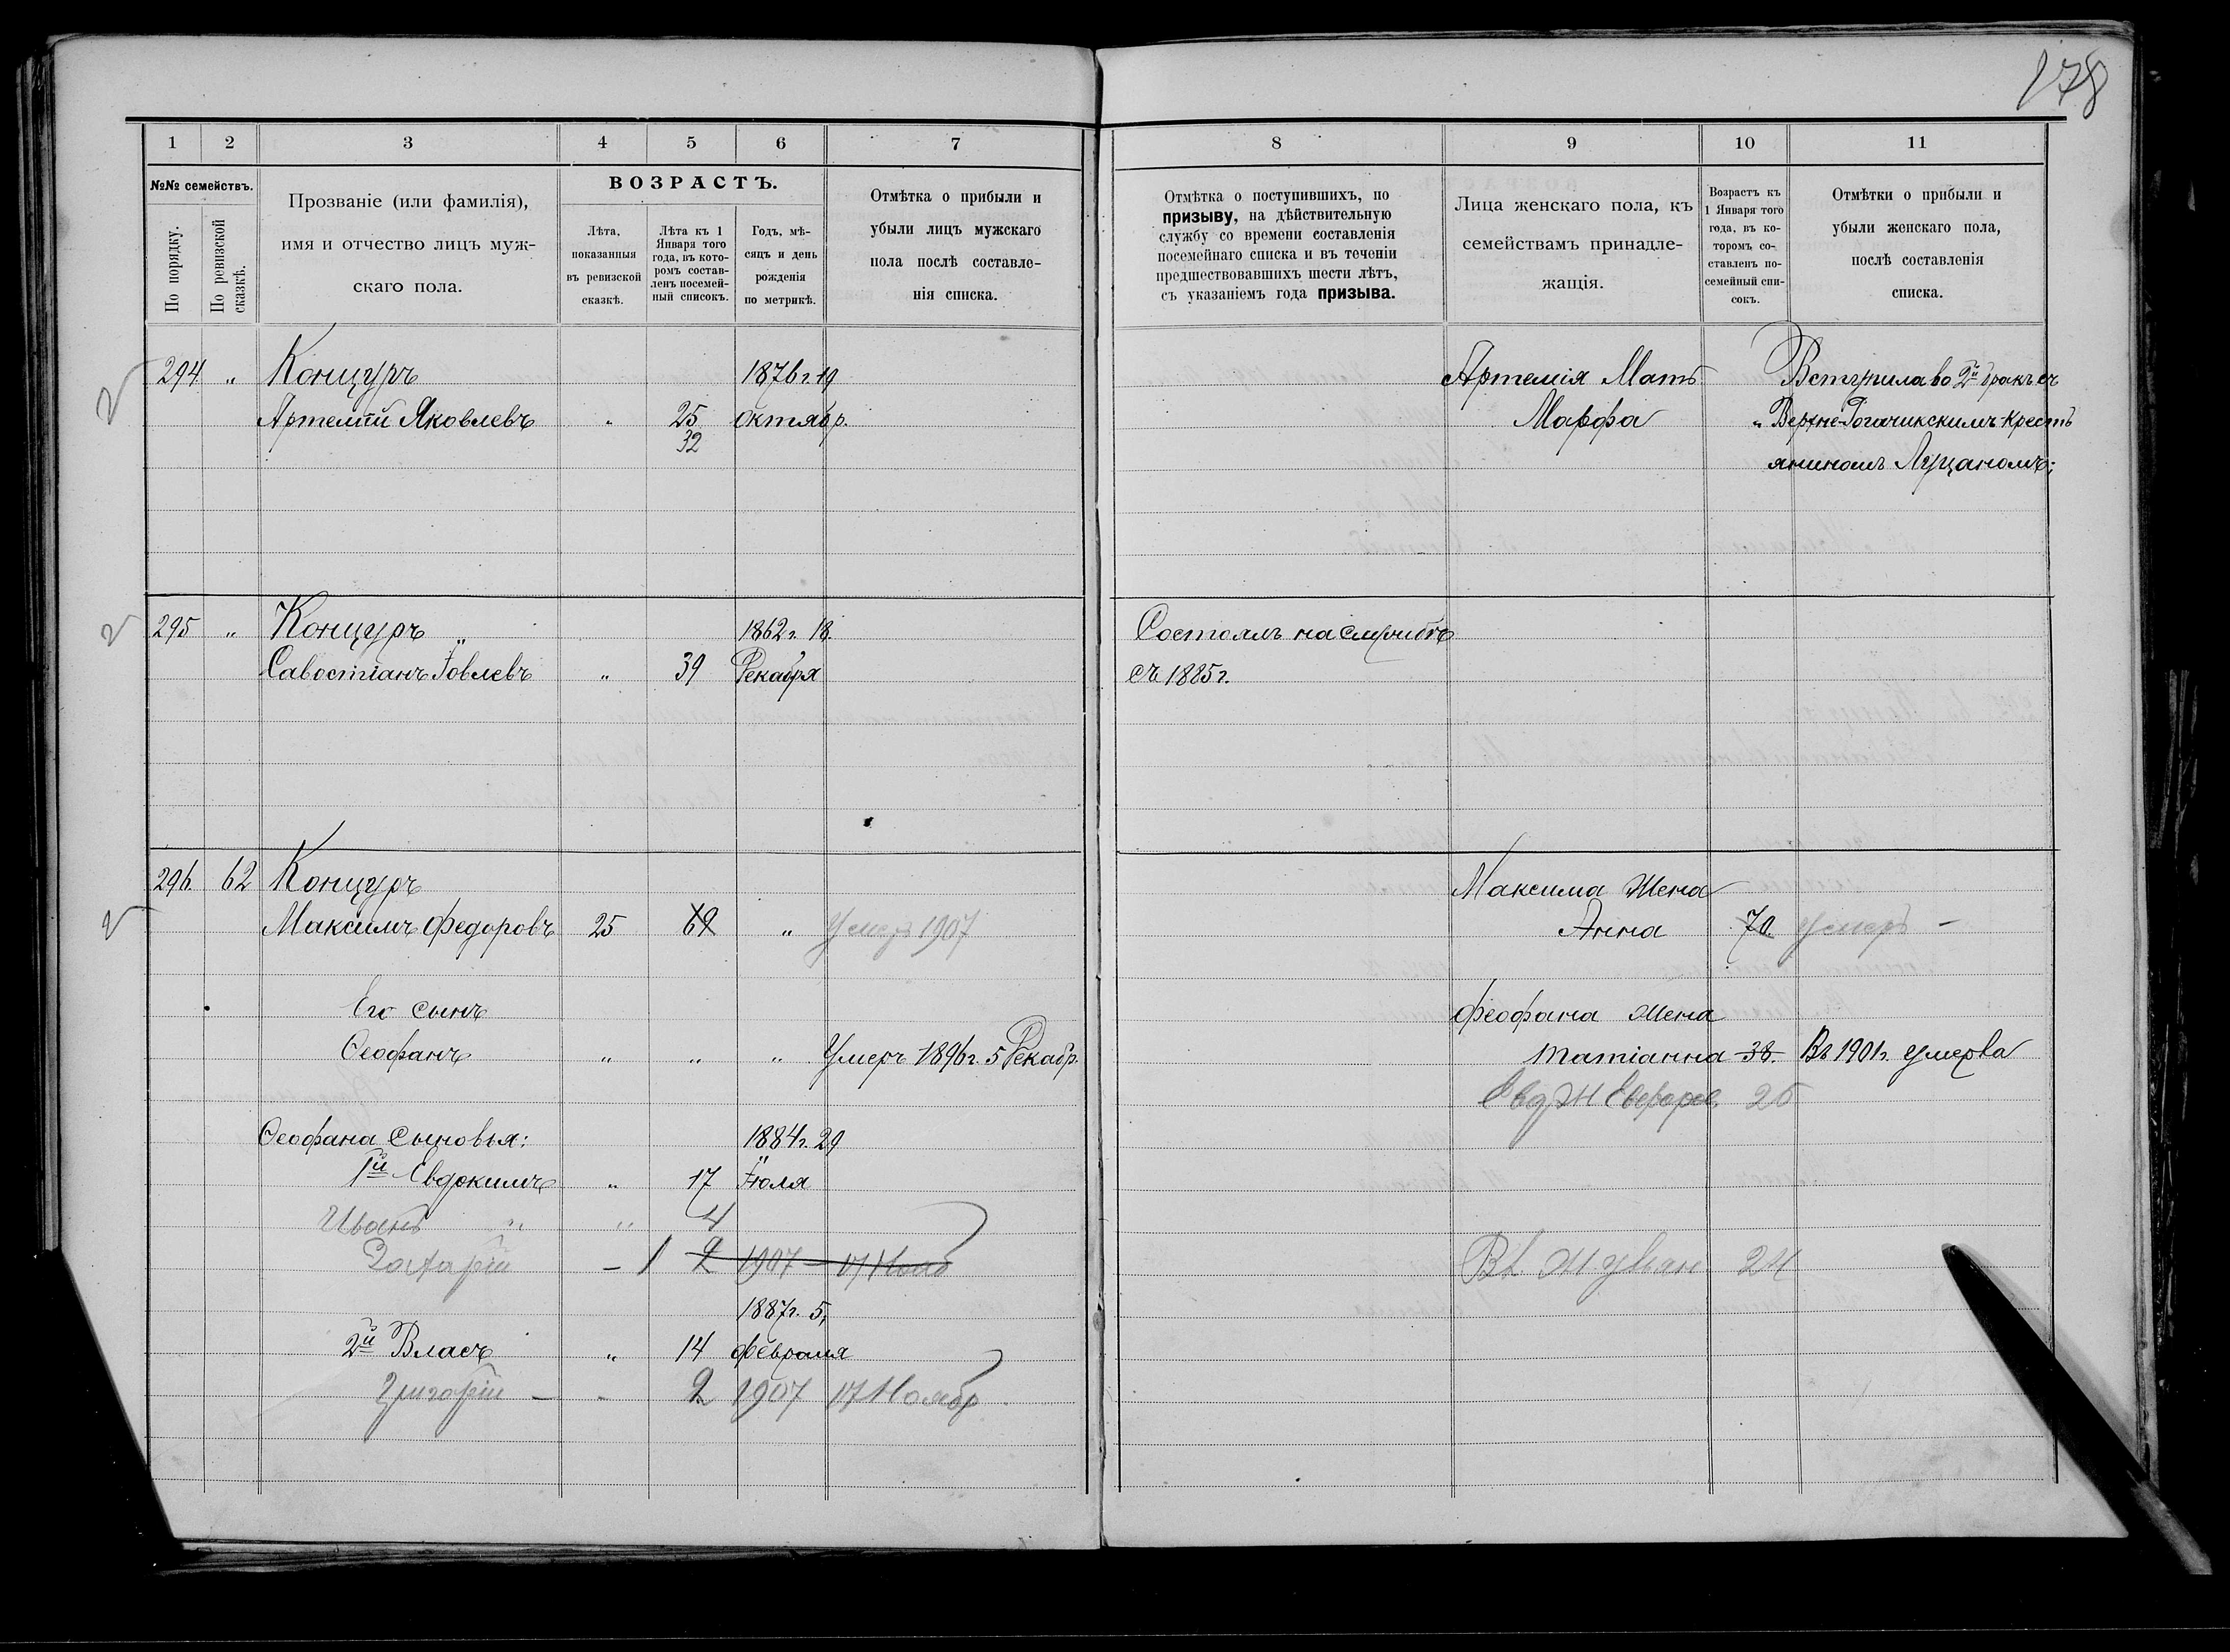 178
1 2 3 4 5 6 7 8 9 10 11
№№ семействъ.
По порядку.
По ревизской сказкѣ.
Прозваніе (или фамилія),
имя и отчество лицъ муж-
скаго пола.
ВОЗРАСТЪ.
Лѣта,
показанныя
въ ревизской
сказкѣ.
Лѣта къ 1
Января того
года, въ кото-
ромъ состав-
ленъ посемей-
ный списокъ.
Годъ, мѣ-
сяцъ и день
рожденія
по метрикѣ.
Отмѣтка о прибыли и
убыли лицъ мужскаго
пола послѣ составле-
нія списка.
Отмѣтка о поступившихъ, по
призыву, на дѣйствительную
службу со времени составленія
посемейнаго списка и въ теченіи
предшествовавшихъ шести лѣтъ,
съ указаніемъ года призыва.
Лица женскаго пола, къ
семействамъ принадле-
жащія.
Возрастъ къ
1 Января того
года, въ ко-
торомъ со-
ставленъ по-
семейный спи-
сокъ.
Отмѣтки о прибыли и
убыли женскаго пола,
послѣ составленія
списка.
294 " Концуръ 1876 г. 19 Артемія Мать Вступила во 2й бракъ съ
Артемій Яковлевъ " 25 октябр. Марфа " Верхне-Рогачикскимъ крестъ
32
яниномъ Луцаномъ;
295 " Концуръ " 1862 г. 18. Состоялъ на службѣ
Савостіанъ Іовлевъ " 39 Декабря съ 1885 г.
296 62 Концуръ Максима Жена
Максимъ Федоровъ 25 69 " Умеръ 1907 Анна 70 умеръ -
Его сынъ Феофана жена
Ѳеофанъ " " " Умеръ 1896 г. 5 Декабр. Татіанна 38. Въ 1901 г. умерла
Евд Ж 25
Ѳеофана сыновья: 1884 г. 29
1й Евдокимъ " 17 Іюля
Иванъ " " 4
Захарій - 1 2 1907 - 17 Нояб Вл Ж 24
1887 г. 5,
2й Власъ " 14 февраля
Григорій - - 2 1907 17 Ноябр